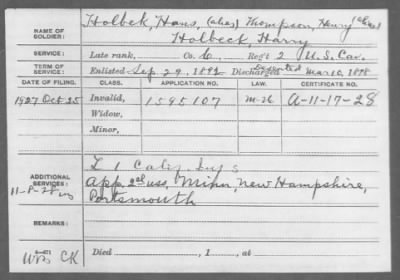 Holbek, Hans, (alias) Thompson, Henry (alias)
NAME OF SOLDIER: Holbeck, Harry
SERVICE: Late rank, Co. Reg't 2 U.S. Cav.
TERM OF SERVICE: Enlisted Sep 29, 1892 Discharged Deserted Mar 10, 1898
DATE OF FILING. CLASS. APPLICATION NO. LAW. CERTIFICATE NO.
1927 Oct 25 Invalid, 1595107 A-11-17-28
Widow,
Minor,
L 1 Calif. Inf
ADDITIONAL SERVICES: App. 2d uss, New Hampshire,
11-8-28 Portsmouth
REMARKS:
CK Died , 1 , at